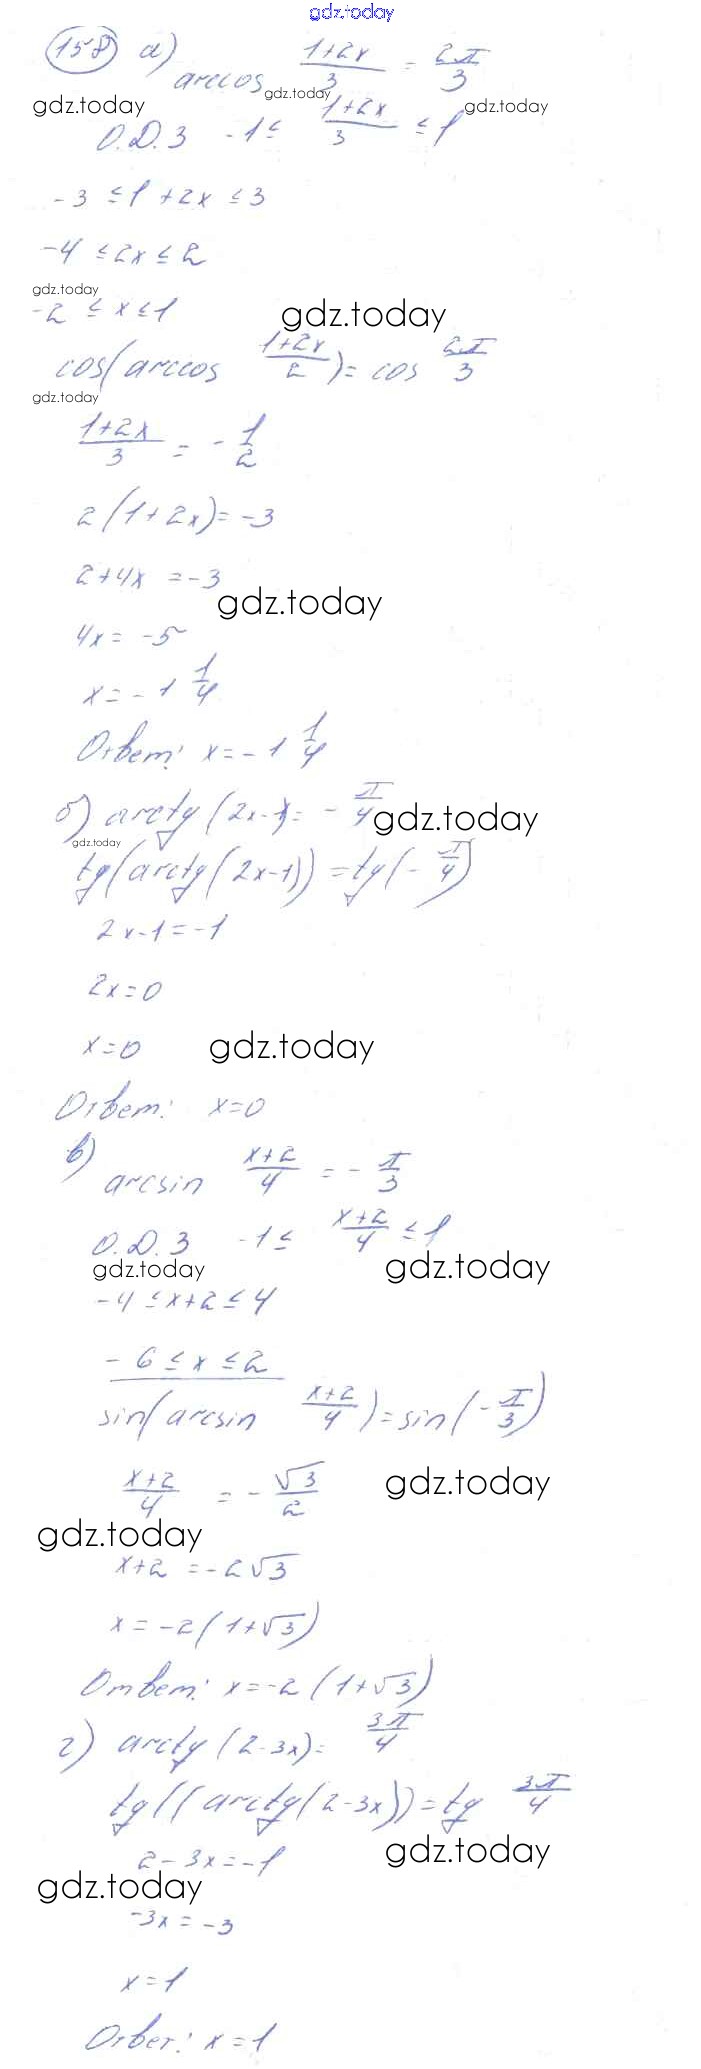 gdz.today
158 а) arccos (1+2x)/3 = 2π/3
gdz.today gdz.today gdz.today
О.Д.З -1 ≤ (1+2x)/3 ≤ 1
-3 ≤ 1 + 2x ≤ 3
-4 ≤ 2x ≤ 2
gdz.today
-2 ≤ x ≤ 1
gdz.today
cos(arccos (1+2x)/2) = cos 2π/3
gdz.today
(1+2x)/3 = - 1/2
2(1+2x) = -3
2+4x = -3
gdz.today
4x = -5
x = -1 1/4
Ответ: x = -1 1/4
б) arctg(2x-1) = - π/4
gdz.today
gdz.today
tg(arctg(2x-1)) = tg(- π/4)
2x-1 = -1
2x = 0
x = 0
gdz.today
Ответ: x = 0
в) arcsin (x+2)/4 = - π/3
О.Д.З -1 ≤ (x+2)/4 ≤ 1
gdz.today gdz.today
-4 ≤ x+2 ≤ 4
-6 ≤ x ≤ 2
sin(arcsin (x+2)/4) = sin(- π/3)
(x+2)/4 = - √3/2
gdz.today
gdz.today
x+2 = -2√3
x = -2(1+√3)
Ответ: x = -2(1+√3)
г) arctg(2-3x) = 3π/4
tg((arctg(2-3x)) = tg 3π/4
gdz.today
2-3x = -1
gdz.today
-3x = -3
x = 1
Ответ: x = 1